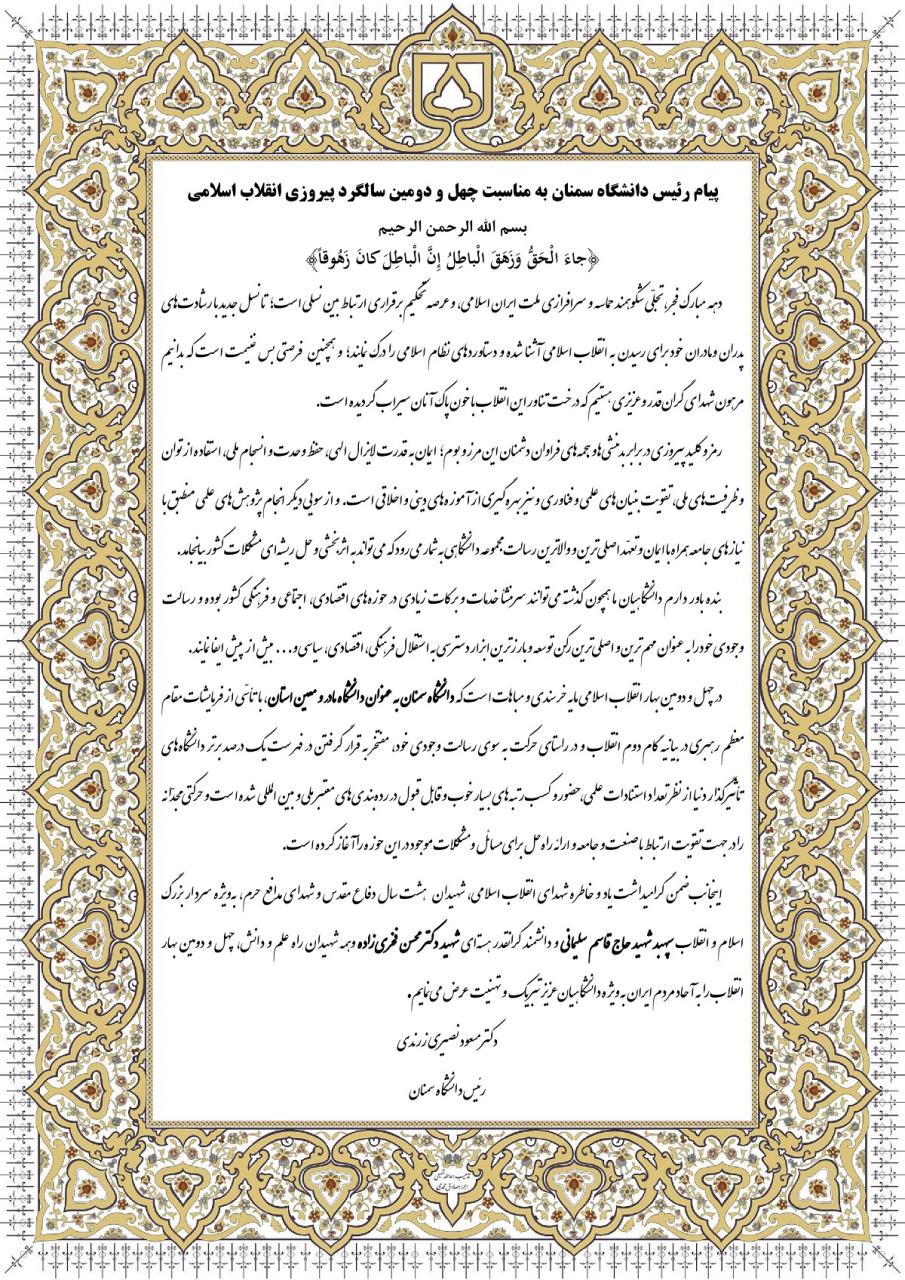 پیام رئیس دانشگاه سمنان به مناسبت چهل و دومین سالگرد پیروزی انقلاب اسلامی
بسم الله الرحمن الرحیم
﴿جاءَ الْحَقُّ وَزَهَقَ الْباطِلُ إِنَّ الْباطِلَ کانَ زَهُوقاً﴾
دهه مبارک فجر، تجلّی شکوهمند حماسه و سرافرازی ملت ایران اسلامی، و عرصه تحکیم برقراری ارتباط بین نسلی است؛ تا نسل جدید با رشادت‌های
پدران و مادران خود برای رسیدن به انقلاب اسلامی آشنا شده و دستاوردهای نظام اسلامی را درک نمایند؛ و همچنین فرصتی بس غنیمت است که بدانیم
مرهون شهدای گران قدر و عزیزی هستیم که درخت تناور این انقلاب با خون پاک آنان سیراب گردیده است.
رمز و کلید پیروزی در برابر بدمنشی‌ها و هجمه‌های فراوان دشمنان این مرز و بوم؛ ایمان به قدرت لایزال الهی، حفظ وحدت و انسجام ملی، استفاده از توان
و ظرفیت‌های ملی، تقویت بنیان‌های علمی و فناوری و نیز بهره‌گیری از آموزه‌های دینی و اخلاقی است. و از سویی دیگر انجام پژوهش‌های علمی منطبق با
نیازهای جامعه همراه با ایمان و تعهّد اصلی‌ترین و والاترین رسالت مجموعه دانشگاهی به شمار می‌رود که می‌تواند به اثربخشی و حل ریشه‌ای مشکلات کشور بیانجامد.
بنده باور دارم دانشگاهیان ما همچون گذشته می‌توانند سرمنشا خدمات و برکات زیادی در حوزه‌های اقتصادی، اجتماعی و فرهنگی کشور بوده و رسالت
وجودی خود را به عنوان مهم‌ترین و اصلی‌ترین رکن توسعه و بارزترین ابزار دسترسی به استقلال فرهنگی، اقتصادی، سیاسی و... بیش از پیش ایفا نمایند.
در چهل و دومین بهار انقلاب اسلامی مایه خرسندی و مباهات است که دانشگاه سمنان به عنوان دانشگاه مادر و معین استان، با تأسّی از فرمایشات مقام
معظم رهبری در بیانیه گام دوم انقلاب و در راستای حرکت به سوی رسالت وجودی خود، مفتخر به قرار گرفتن در فهرست یک درصد برتر دانشگاه‌های
تأثیرگذار دنیا از نظر تعداد استنادات علمی، حضور و کسب رتبه‌های بسیار خوب و قابل قبول در رده‌بندی‌های معتبر ملی و بین المللی شده است و حرکتی مجدّانه
را در جهت تقویت ارتباط با صنعت و جامعه و ارائه راه حل برای مسائل و مشکلات موجود در این حوزه را آغاز کرده است.
اینجانب ضمن گرامیداشت یاد و خاطره شهدای انقلاب اسلامی، شهیدان هشت سال دفاع مقدس و شهدای مدافع حرم، به‌ویژه سردار بزرگ
اسلام و انقلاب سپهبد شهید حاج قاسم سلیمانی و دانشمند گرانقدر هسته‌ای شهید دکتر محسن فخری‌زاده و همه شهیدان راه علم و دانش، چهل و دومین بهار
انقلاب را به آحاد مردم ایران به ویژه دانشگاهیان عزیز تبریک و تهنیت عرض می‌نمایم.
دکتر مسعود نصیری زرندی
رئیس دانشگاه سمنان